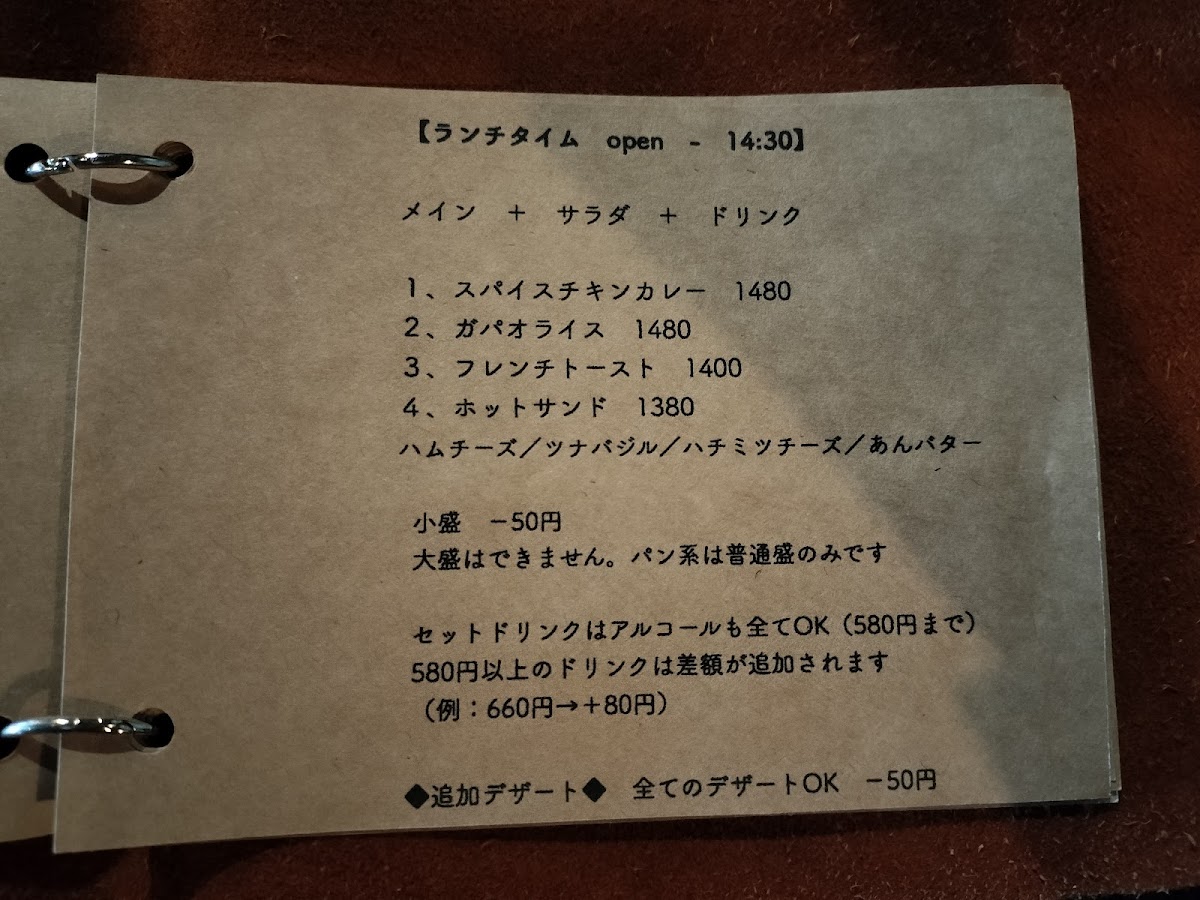 【ランチタイム　open　-　14:30】
メイン　＋　サラダ　＋　ドリンク
１、スパイスチキンカレー　1480
２、ガパオライス　1480
３、フレンチトースト　1400
４、ホットサンド　1380
ハムチーズ／ツナバジル／ハチミツチーズ／あんバター
小盛　－50円
大盛はできません。パン系は普通盛のみです
セットドリンクはアルコールも全てOK（580円まで）
580円以上のドリンクは差額が追加されます
（例：660円→＋80円）
◆追加デザート◆　全てのデザートOK　－50円